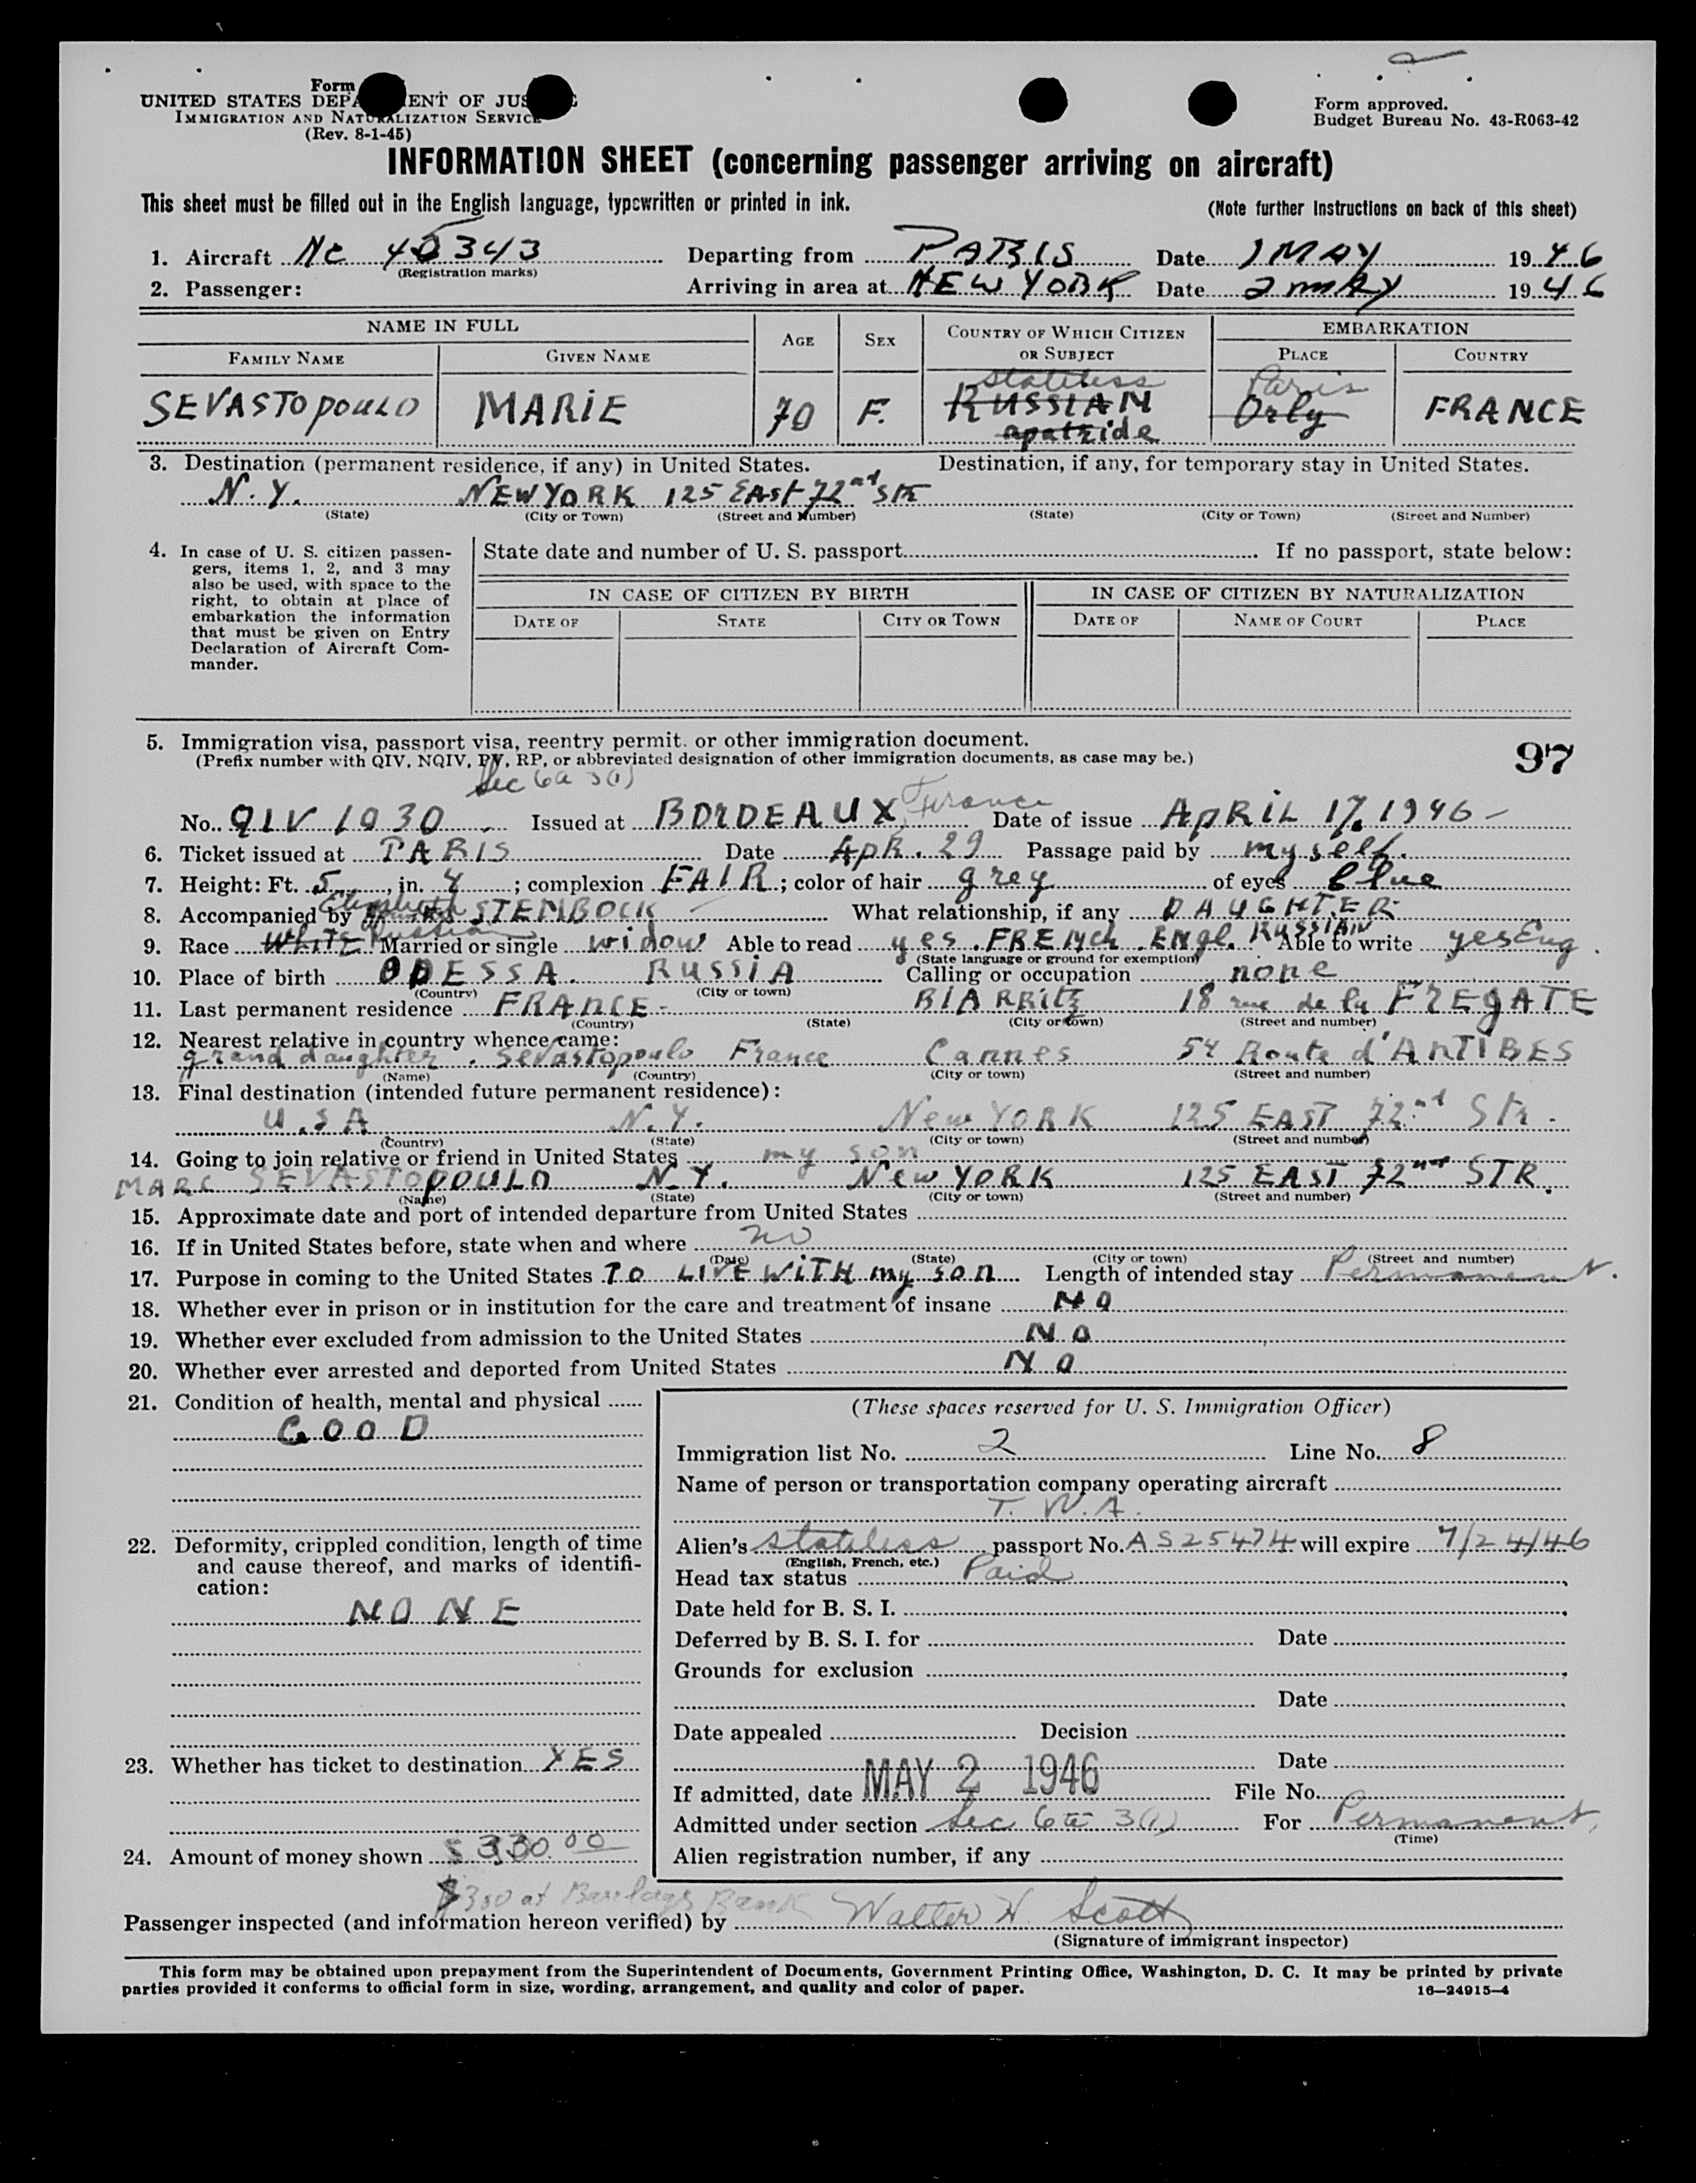 Form
UNITED STATES DEPA ENT OF JUS
IMMIGRATION AND NATURALIZATION SERVICE
(Rev. 8-1-45)
Form approved.
Budget Bureau No. 43-R063-42
INFORMATION SHEET (concerning passenger arriving on aircraft)
This sheet must be filled out in the English language, typewritten or printed in ink.
(Note further instructions on back of this sheet)
1. Aircraft Nc 45343 Departing from PARIS Date 1 MAY 1946
(Registration marks)
2. Passenger: Arriving in area at NEW YORK Date 2 MAY 1946
NAME IN FULL AGE SEX COUNTRY OF WHICH CITIZEN OR SUBJECT EMBARKATION
FAMILY NAME GIVEN NAME PLACE COUNTRY
stateless Paris
SEVASTOPOULO MARIE 70 F. RUSSIAN Orly FRANCE
apatride
3. Destination (permanent residence, if any) in United States. Destination, if any, for temporary stay in United States.
N.Y. NEW YORK 125 EAst 72nd STR
(State) (City or Town) (Street and Number) (State) (City or Town) (Street and Number)
4. In case of U. S. citizen passen-
gers, items 1, 2, and 3 may
also be used, with space to the
right, to obtain at place of
embarkation the information
that must be given on Entry
Declaration of Aircraft Com-
mander.
State date and number of U. S. passport If no passport, state below:
IN CASE OF CITIZEN BY BIRTH IN CASE OF CITIZEN BY NATURALIZATION
DATE OF STATE CITY OR TOWN DATE OF NAME OF COURT PLACE
5. Immigration visa, passport visa, reentry permit, or other immigration document.
(Prefix number with QIV, NQIV, PV, RP, or abbreviated designation of other immigration documents, as case may be.)
97
Sec 6a 3(1)
No. QIV 1030 Issued at BORDEAUX, France Date of issue APRIL 17, 1946
6. Ticket issued at PARIS Date APR. 29 Passage paid by myself.
7. Height: Ft. 5, in. 4; complexion FAIR; color of hair grey of eyes blue
8. Accompanied by Elizabeth STEMBOCK What relationship, if any DAUGHTER
9. Race WHITE Russian Married or single widow Able to read yes. FRENch. ENgl. RUSSIAN Able to write yes Eng.
(State language or ground for exemption)
10. Place of birth ODESSA. RUSSIA Calling or occupation none
(Country) (City or town)
11. Last permanent residence FRANCE- BIARRitz 18 rue de la FREgATE
(Country) (State) (City or town) (Street and number)
12. Nearest relative in country whence came:
grand daughter. Sevastopoulo France Cannes 54 Route d'ANTIBES
(Name) (Country) (City or town) (Street and number)
13. Final destination (intended future permanent residence):
U.S.A N.Y. New YORK 125 EAST 72nd Str.
(Country) (State) (City or town) (Street and number)
14. Going to join relative or friend in United States my son
MARC SEVASTOPOULO N.Y. New YORK 125 EAST 72nd STR.
(Name) (State) (City or town) (Street and number)
15. Approximate date and port of intended departure from United States
16. If in United States before, state when and where no
(Date) (State) (City or town) (Street and number)
17. Purpose in coming to the United States TO LIVE WITH my son Length of intended stay Permanent.
18. Whether ever in prison or in institution for the care and treatment of insane NO
19. Whether ever excluded from admission to the United States NO
20. Whether ever arrested and deported from United States NO
21. Condition of health, mental and physical
GOOD
22. Deformity, crippled condition, length of time
and cause thereof, and marks of identifi-
cation:
NONE
23. Whether has ticket to destination YES
24. Amount of money shown $330.00
$350 at Barclays Bank
(These spaces reserved for U. S. Immigration Officer)
Immigration list No. 2 Line No. 8
Name of person or transportation company operating aircraft
T. W. A.
Alien's stateless passport No. AS25474 will expire 7/24/46
(English, French, etc.)
Head tax status Paid
Date held for B. S. I.
Deferred by B. S. I. for Date
Grounds for exclusion
Date
Date appealed Decision
Date
If admitted, date MAY 2 1946 File No.
Admitted under section Sec 6a 3(1) For Permanent
(Time)
Alien registration number, if any
Passenger inspected (and information hereon verified) by Walter W. Scott
(Signature of immigrant inspector)
This form may be obtained upon prepayment from the Superintendent of Documents, Government Printing Office, Washington, D. C. It may be printed by private
parties provided it conforms to official form in size, wording, arrangement, and quality and color of paper.
16—24915-4